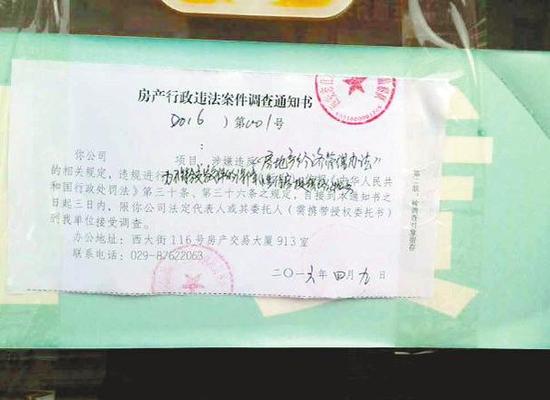 房产行政违法案件调查通知书
2016 )第001号
你公司 项目,涉嫌违反《房地产经济管理办法》
的相关规定,违规进行 《中华人民共
和国行政处罚法》第三十条、第三十六条之规定,自接到本通知书之
日起三日内,限你公司法定代表人或其委托人(需携带授权委托书)
到我单位接受调查。
办公地址:西大街116号房产交易大厦913室
联系电话:029-87622063
二〇一六年 四 月 九 日
第二联:被调查对象留存